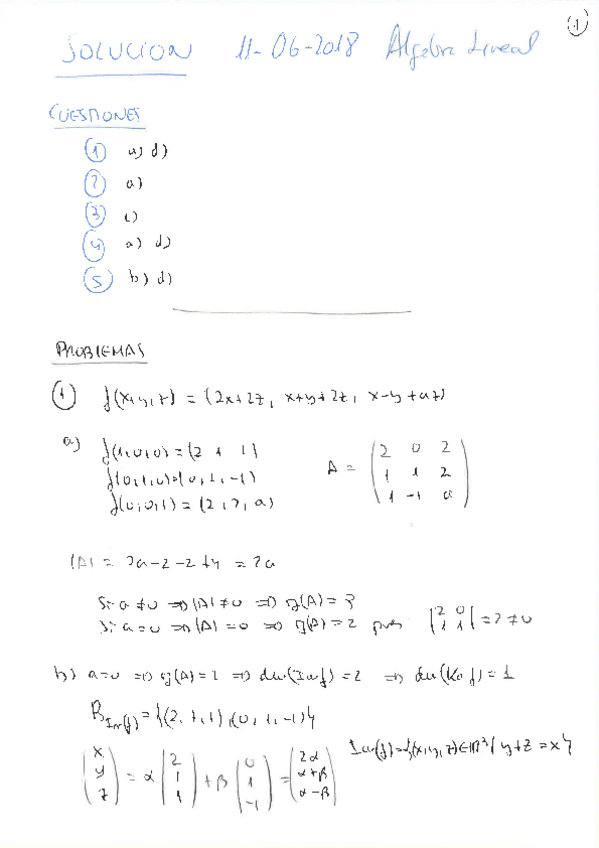 1
SOLUCION 11-06-2018 Álgebra Lineal
CUESTIONES
1 a) d)
2 a)
3 c)
4 a) d)
5 b) d)
PROBLEMAS
1 f(x,y,z) = (2x+2z, x+y+2z, x-y+az)
a) f(1,0,0) = (2 1 1)
f(0,1,0) = (0,1,-1)
f(0,0,1) = (2,2,a)
A = (2 0 2
1 1 2
1 -1 a)
|A| = 2a-2-2+4 = 2a
Si a≠0 => |A|≠0 => rg(A)=3
Si a=0 => |A|=0 => rg(A)=2 pues |2 0
1 1| = 2≠0
b) a=0 => rg(A)=2 => dim(Im f)=2 => dim(Ker f)=1
B Im(f) = {(2,1,1),(0,1,-1)}
(x
y
z) = α (2
1
1) + β (0
1
-1) = (2α
α+β
α-β)
Im(f)={(x,y,z)∈ℝ³/ y+z=x}